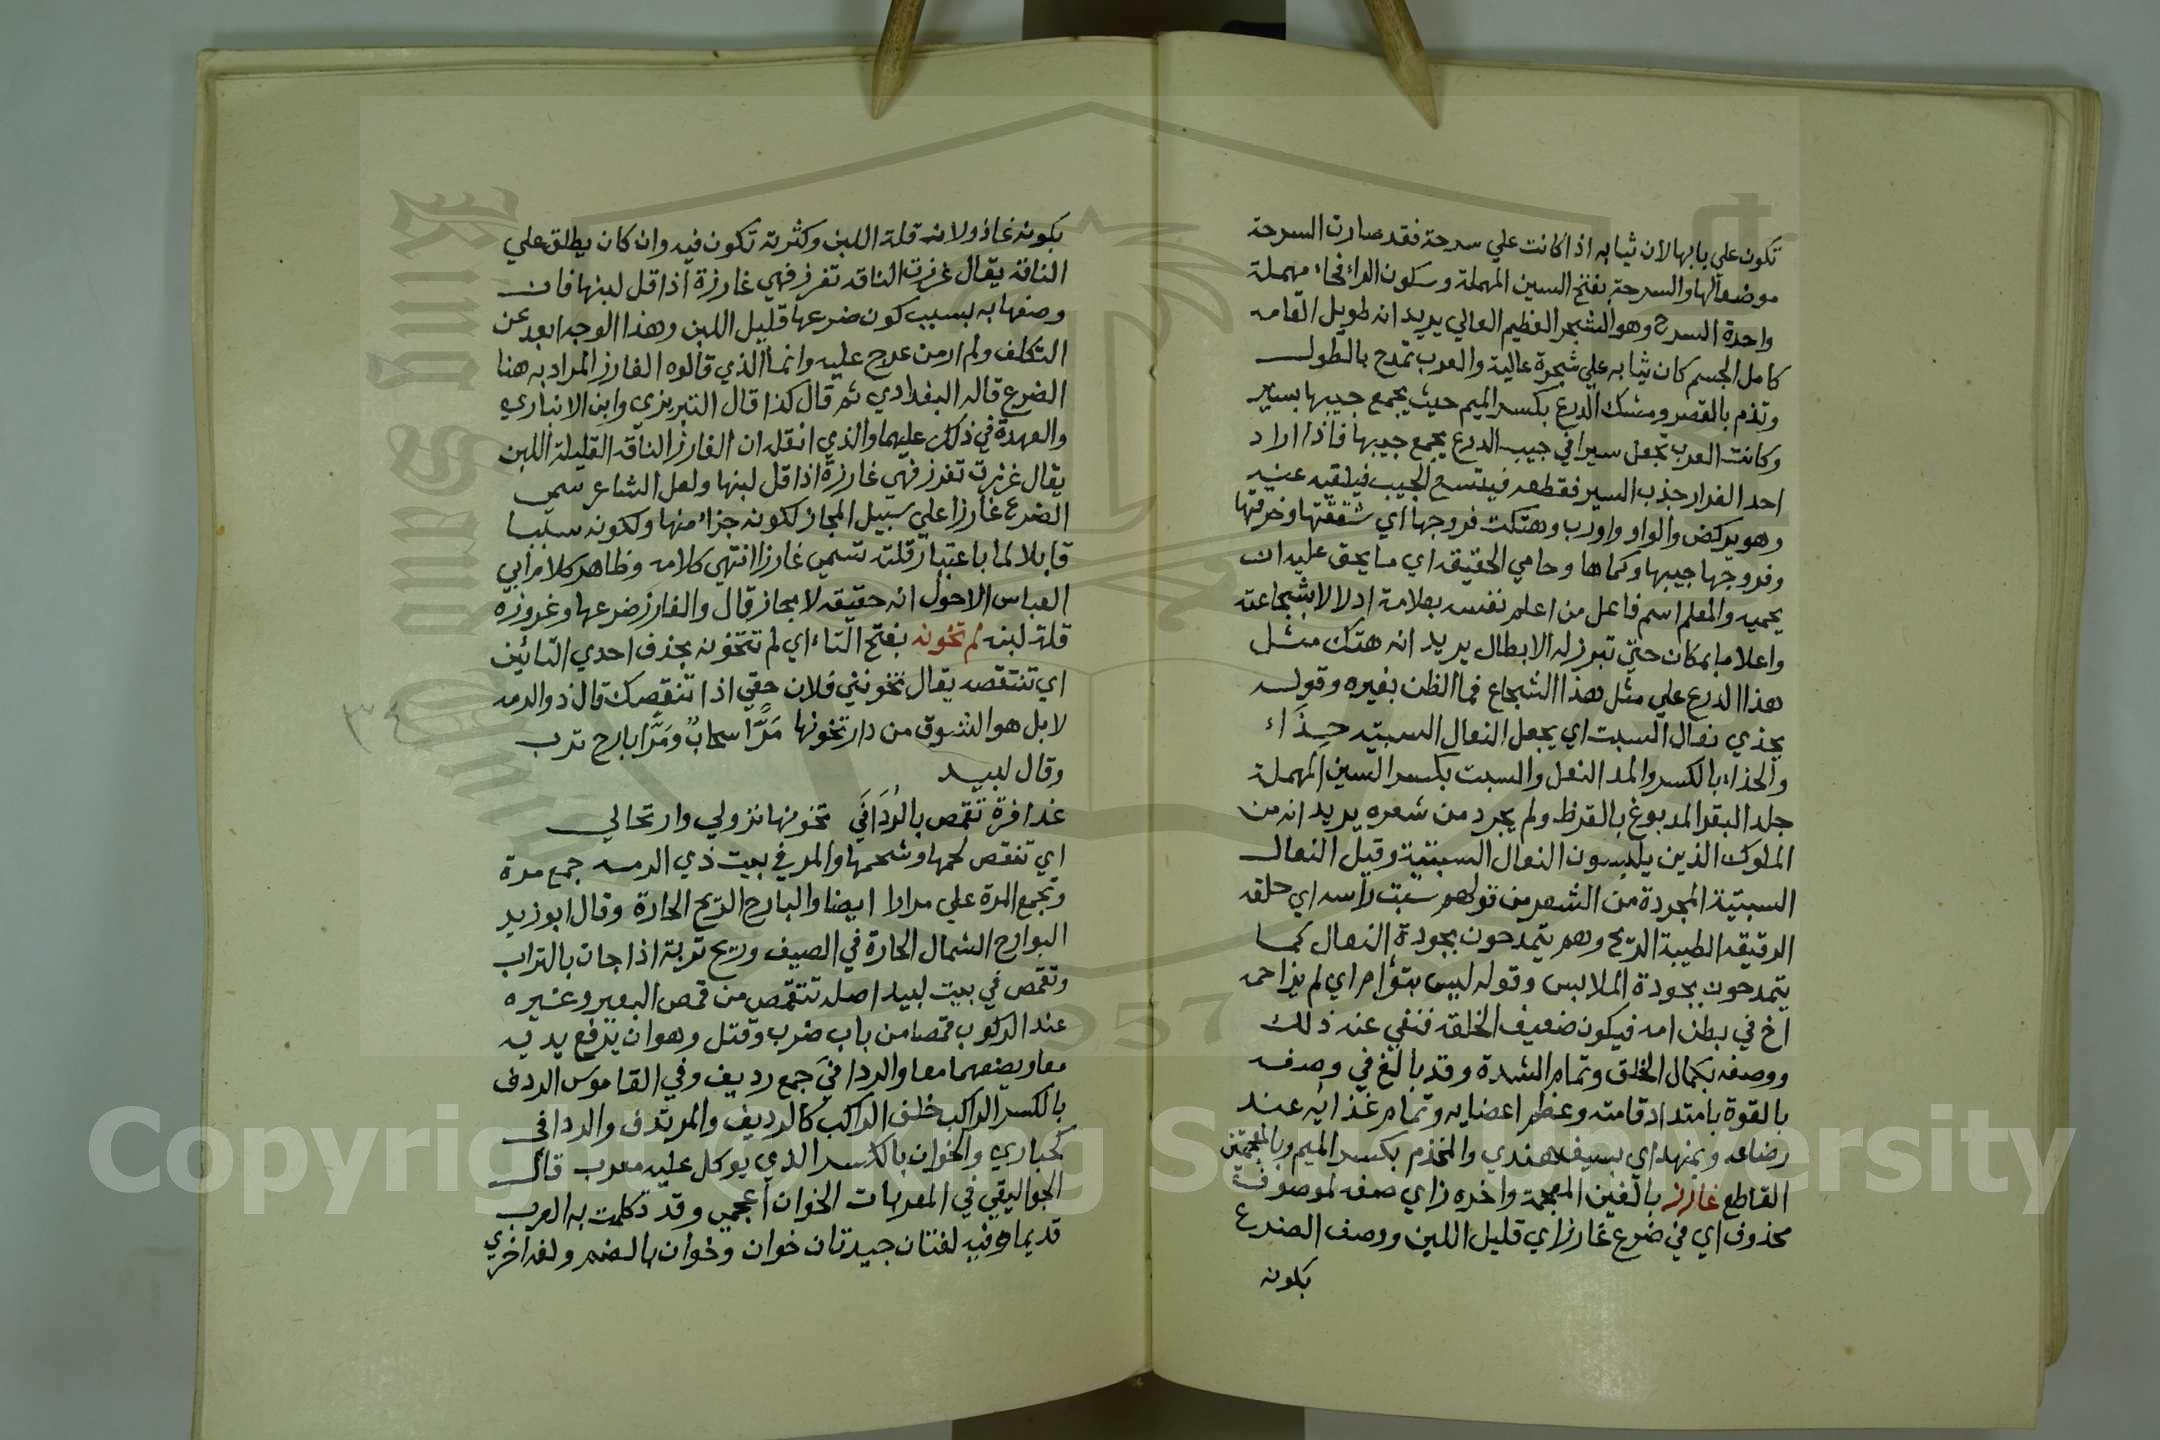 تكون علي بابها لان ثيابه اذا كانت علي سرحة فقد صارت السرحة
موضعا لها والسرحة بفتح السين المهملة وسكون الراء فحاء مهملة
واحدة السرح وهو الشجر العظيم العالي يريد انه طويل القامه
كامل الجسم كان ثيابه علي شجرة عالية والعرب تمدح بالطول
وتذم بالقصر ومشك الدرع بكسر الميم حيث يجمع جيبها بسير
وكانت العرب تجعل سيرا في جيب الدرع يجمع جيبها فاذا اراد
احد الفرار جذب السير فقطعه فيتسع الجيب فيلقيه عنه
وهو يركض والواو واو رب وهتكت فروجها اي شققتها وخرقتها
وفروجها جيبها وكماها وحامي الحقيقه اي ما يحق عليه ان
يحميه والمعلم اسم فاعل من اعلم نفسه بعلامة ادلالا بشجاعته
واعلاما بمكان حتي تبرز له الابطال يريد انه هتك مثل
هذا الدرع علي مثل هذا الشجاع فما الظن بغيره وقوله
يحذي نعال السبت اي يجعل النعال السبتيه حِذَاء
والحذاء بالكسر والمد النعل والسبت بكسر السين المهملة
جلد البقر المدبوغ بالقرظ ولم يجرد من شعره يريد انه من
الملوك الذين يلبسون النعال السبتية وقيل النعال
السبتية المجردة من الشعر من قولهم سبت راسه اي حلقه
الرقيقه الطيبة الريح وهم يتمدحون بجودة النعال كما
يتمدحون بجودة الملابس وقوله ليس بتؤام اي لم يزاحمه
اخ في بطن امه فيكون ضعيف الخلقه فنفي عنه ذلك
ووصفه بكمال الخلق وتمام الشدة وقد بالغ في وصفه
بالقوة بامتداد قامته وعظم اعضايه وتمام غذائه عند
رضاعه وبمهند اي بسيف هندي والمخذم بكسر الميم وبالمعجمتين
القاطع غارز بالغين المعجمة واخره زاي صفه لموصوف
محذوف اي في ضرع غارز اي قليل اللبن ووصف الضرع
بكونه
بكونه غارزا لانه قلة اللبن وكثرته تكون فيه وان كان يطلق علي
الناقة يقال غرزت الناقه تغرز فهي غارزة اذا قل لبنها فان
وصفها به بسبب كون ضرعها قليل اللبن وهذا الوجه ابعد عن
التكلف ولم ار من عرج عليه وانما الذي قالوه الغارز المراد به هنا
الضرع قاله البغدادي ثم قال كذا قال التبريزي وابن الانباري
والعهدة في ذلك عليهما والذي انقله ان الغارز الناقه القليلة اللبن
يقال غرزت تغرز فهي غارزة اذا قل لبنها ولعل الشاعر سمي
الضرع غارزا علي سبيل المجاز لكونه جزا منها ولكونه سببا
قابلا لما باعتبار قلته تسمي غارزا انتهي كلامه وظاهر كلام ابي
العباس الاحول انه حقيقه لا مجاز قال والغارز ضرعها وغروزه
قلة لبنه لم تخونه بفتح التاء اي لم تتخونه بحذف احدي التائين
اي تنتقصه يقال تخونني فلان حقي اذا تنقصك قال ذو الرمه
لا بل هو الشوق من دار تخونها مَرًّا سحابٌ ومَرًّا بارح ترب
وقال لبيد
عذافرة تقمص بالرُدَافَي تخونها نزولي وارتحالي
اي تنقص لحمها وشحمها والمر في بيت ذي الرمه جمع مرة
وتجمع المرة علي مرار ايضا والبارح الريح الحارة وقال ابو زيد
البوارح الشمال الحارة في الصيف وريح تربة اذا جات بالتراب
وتقمص في بيت لبيد اصله تتقمص من قمص البعير وغيره
عند الركوب قمصا من باب ضرب وقتل وهو ان يرفع يديه
معا ويضعهما معا والردافي جمع رديف وفي القاموس الردف
بالكسر الراكب خلف الراكب كالرديف والمرتدف والردافي
كحباري والخوان بالكسر الذي يوكل عليه معرب قال
الجواليقي في المعربات الخوان اعجمي وقد تكلمت به العرب
قديما وفيه لغتان جيدتان خوان وخوان بالضم ولغه اخري
٣٤
Copyright © King Saud University
King Saud University
1957